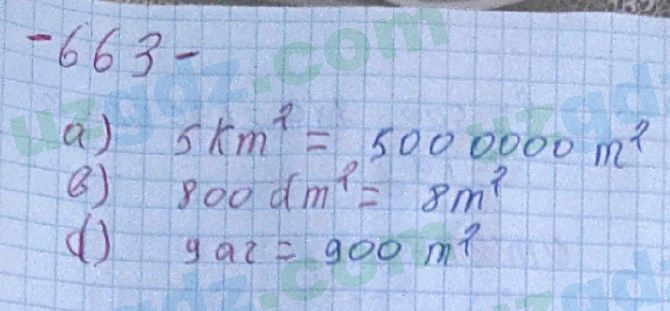 -663-
a) 5km² = 5000000 m²
b) 800 dm² = 8m²
d) 9ar = 900 m²